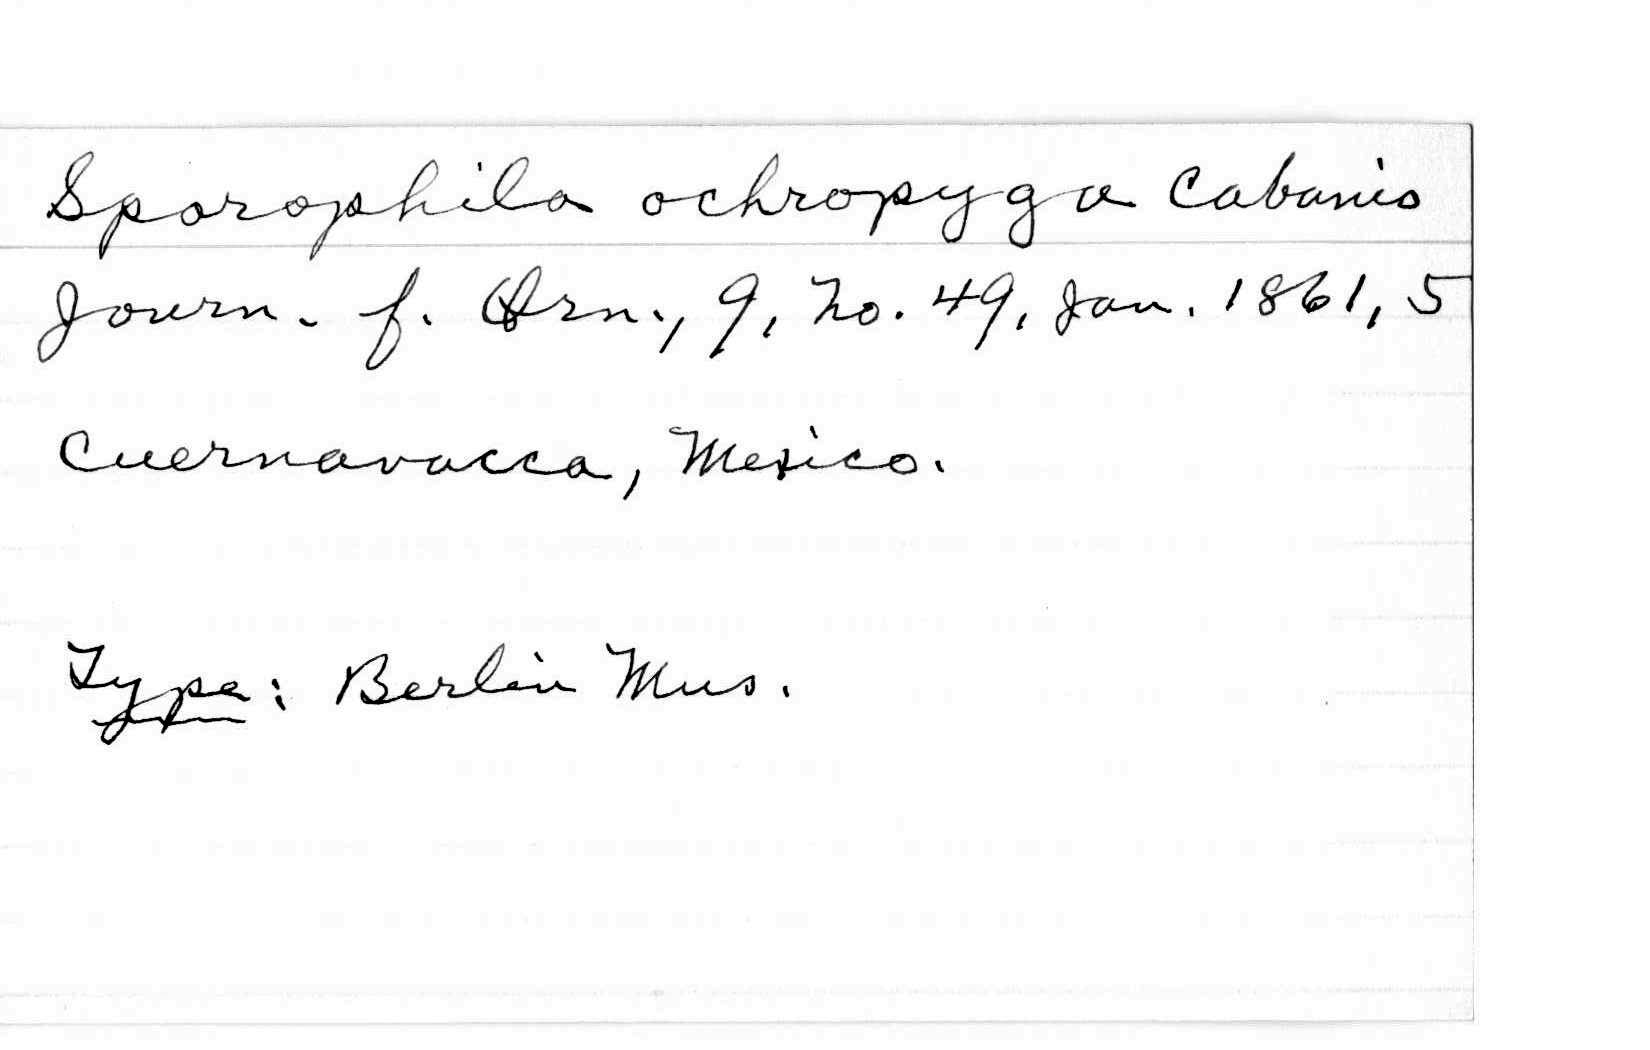 Sporophila ochropyga Cabanis
Journ. f. Orn., 9, no. 49, Jan. 1861, 5
Cuernavacca, Mexico.
Type: Berlin Mus.